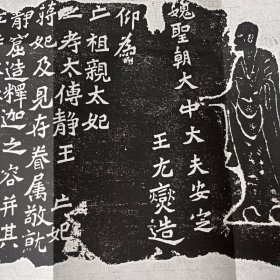 魏聖朝大中大夫安定
王元燮造
仰為
亡祖親太妃
亡考太傅靜王 亡妣
蔣妃及見存眷屬敬就
靜窟造釋迦之容并其